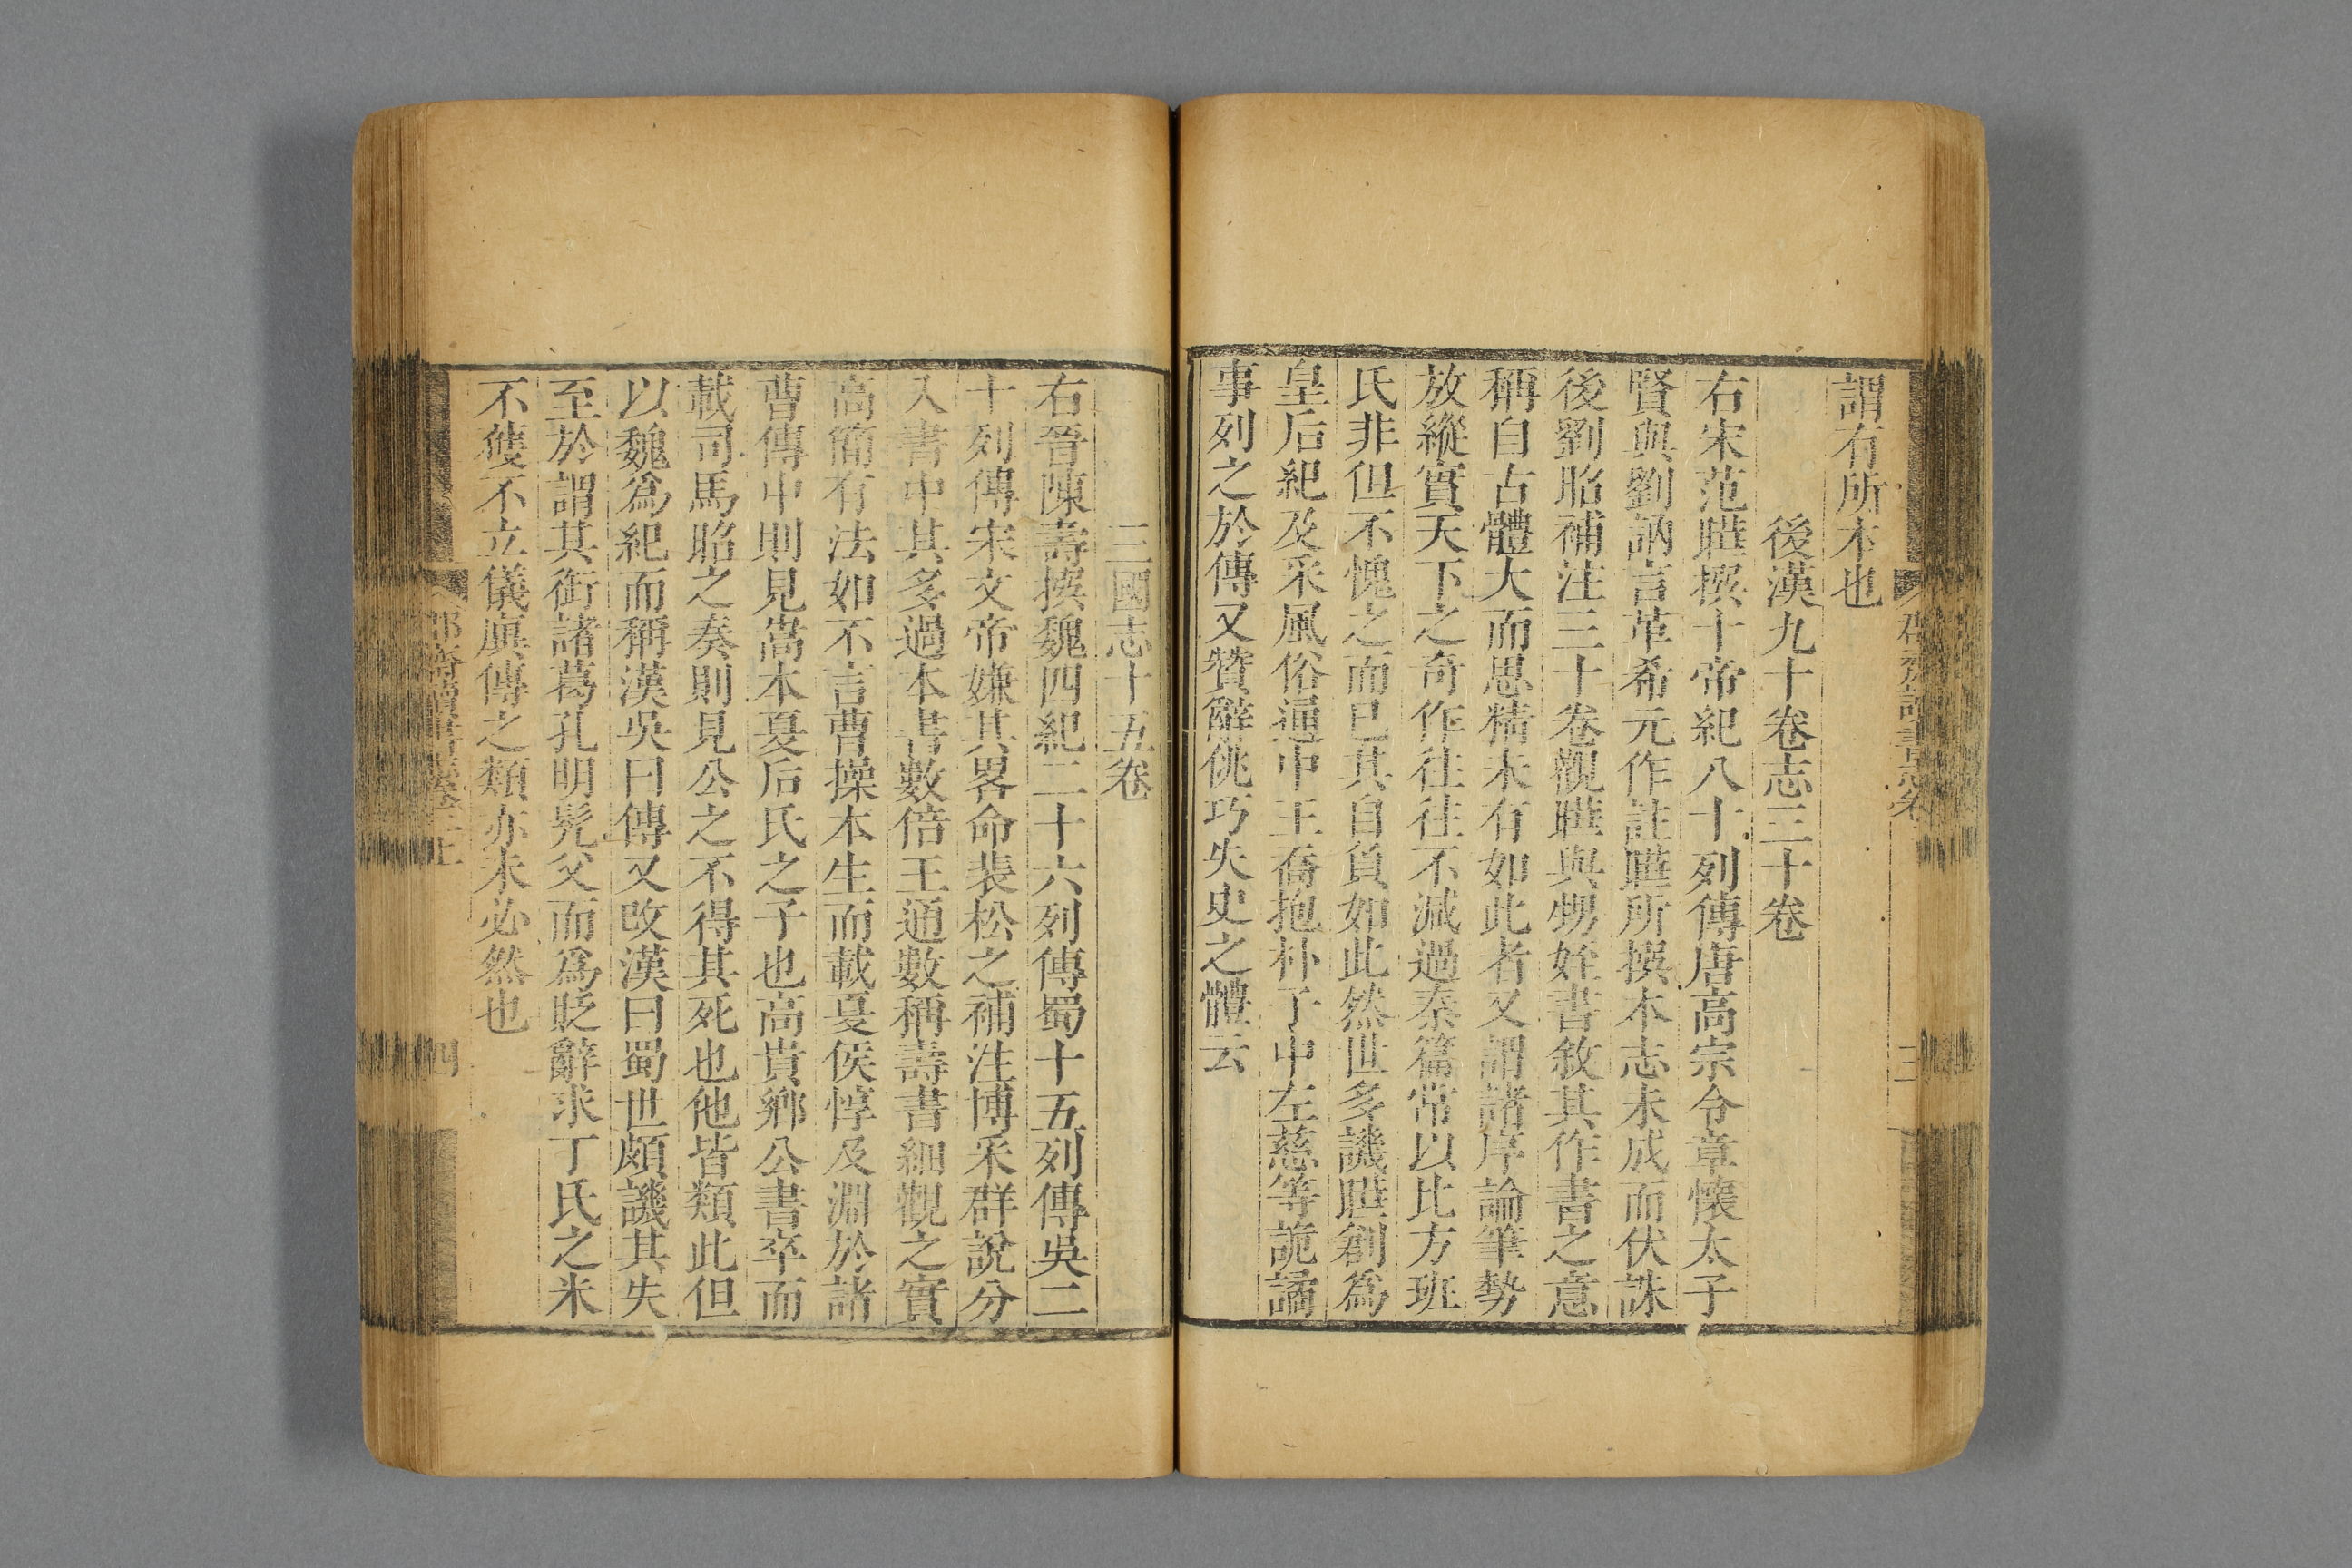 謂有所本也
後漢九十卷志三十卷
右宋范曄撰十帝紀八十列傳唐高宗令章懷太子
賢與劉訥言革希元作註曄所撰本志未成而伏誅
後劉昭補注三十卷觀曄與甥姪書敘其作書之意
稱自古體大而思精未有如此者又謂諸序論筆勢
放縱實天下之奇作往往不減過秦篇常以比方班
氏非但不愧之而已其自負如此然世多譏曄創為
皇后紀及采風俗通中王喬抱朴子中左慈等詭譎
事列之於傳又贊辭佻巧失史之體云
三
三國志十五卷
右晉陳壽撰魏四紀二十六列傳蜀十五列傳吳二
十列傳宋文帝嫌其畧命裴松之補注博采群說分
入書中其多過本書數倍王通數稱壽書細觀之實
高簡有法如不言曹操本生而載夏侯惇及淵於諸
曹傳中則見嵩本夏后氏之子也高貴鄉公書卒而
載司馬昭之奏則見公之不得其死也他皆類此但
以魏為紀而稱漢吳曰傳又改漢曰蜀世頗譏其失
至於謂其銜諸葛孔明髡父而為貶辭求丁氏之米
不獲不立儀廙傳之類亦未必然也
四